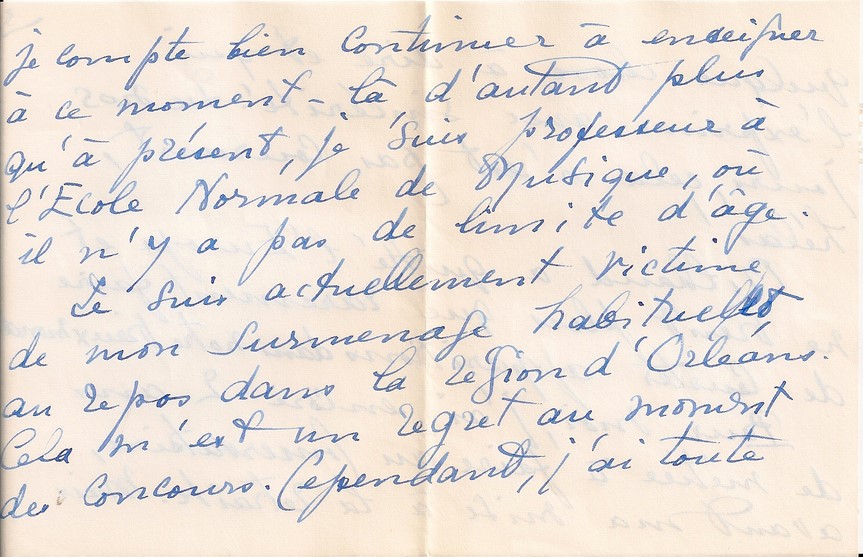 je compte bien continuer à enseigner
à ce moment-là d'autant plus
qu'à présent, je suis professeur à
l'Ecole Normale de Musique, où
il n'y a pas de limite d'âge.
Je suis actuellement victime
de mon surmenage habituel et
au repos dans la région d'Orléans.
Cela m'est un regret au moment
des concours. Cependant, j'ai toute